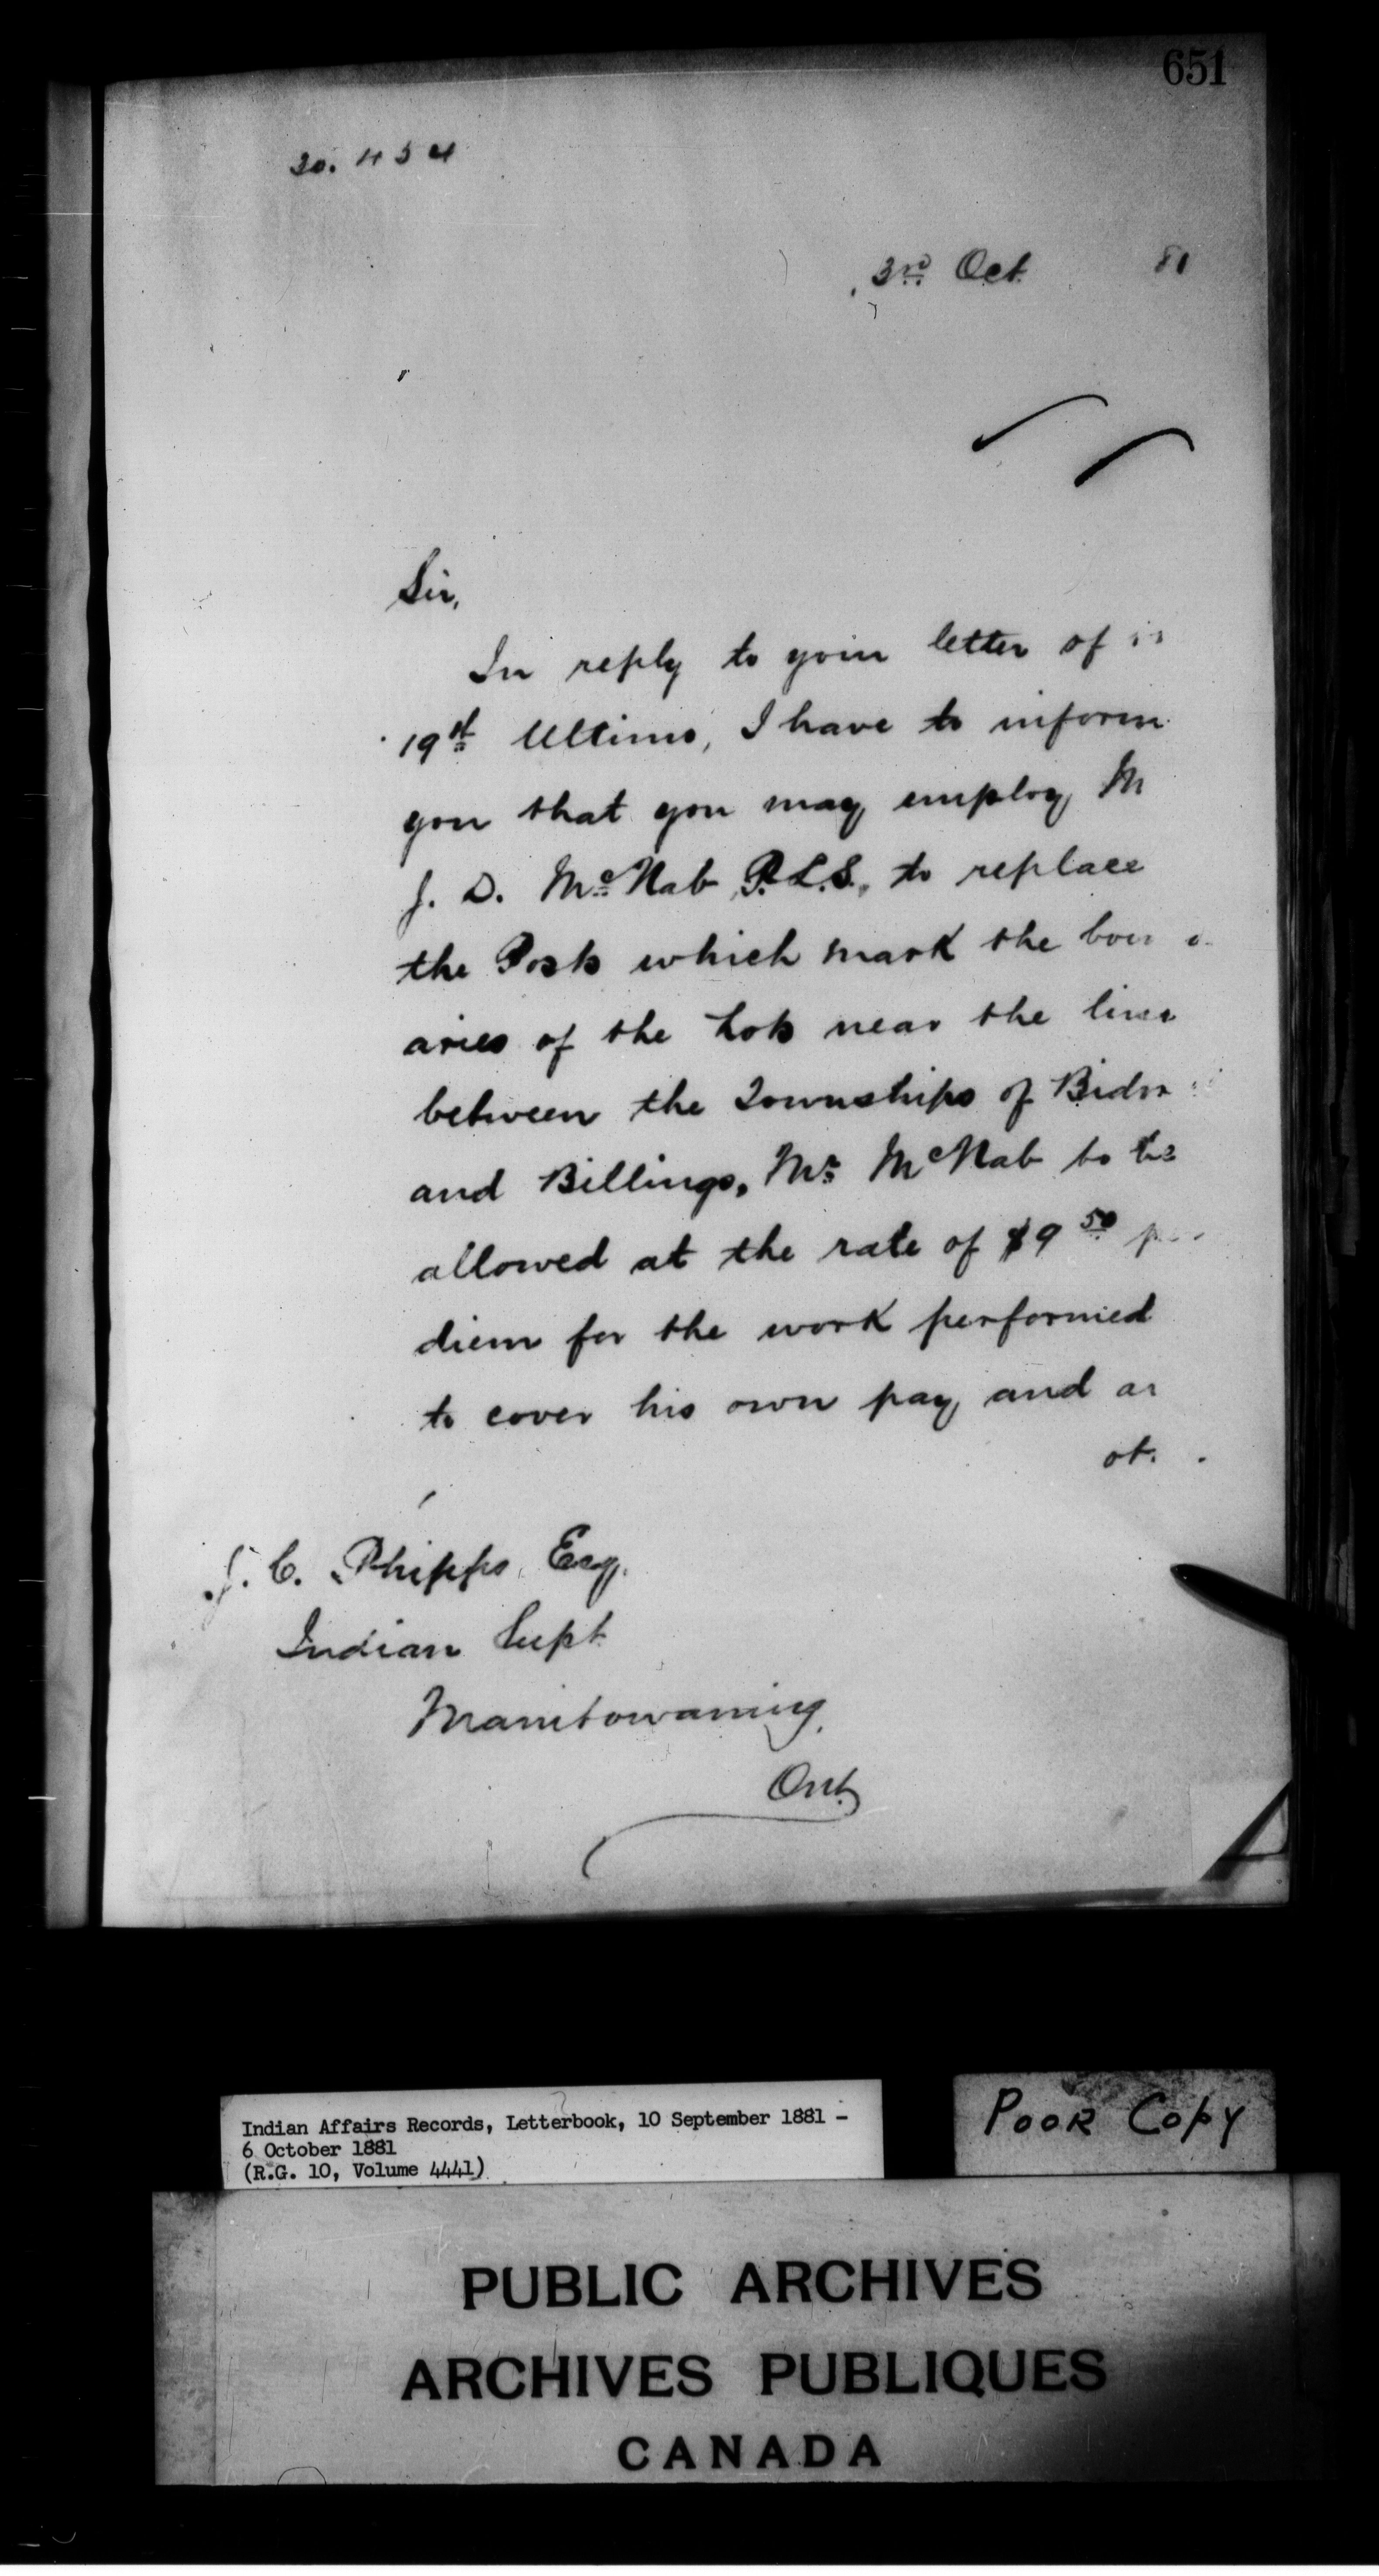 651
20.454
3rd Oct. 81
Sir,
In reply to your letter of
19th Ultimo, I have to inform
you that you may employ M
J. D. McNab P.L.S., to replace
the Posts which mark the boun
aries of the Lots near the line
between the Townships of Bidw
and Billings, Mr McNab to be
allowed at the rate of $9 50 p
diem for the work performed
to cover his own pay and
J. C. Phipps, Esq.
Indian Supt.
Manitowaning,
Ont.
Indian Affairs Records, Letterbook, 10 September 1881 -
6 October 1881
(R.G. 10, Volume 4441)
POOR COPY
PUBLIC ARCHIVES
ARCHIVES PUBLIQUES
CANADA